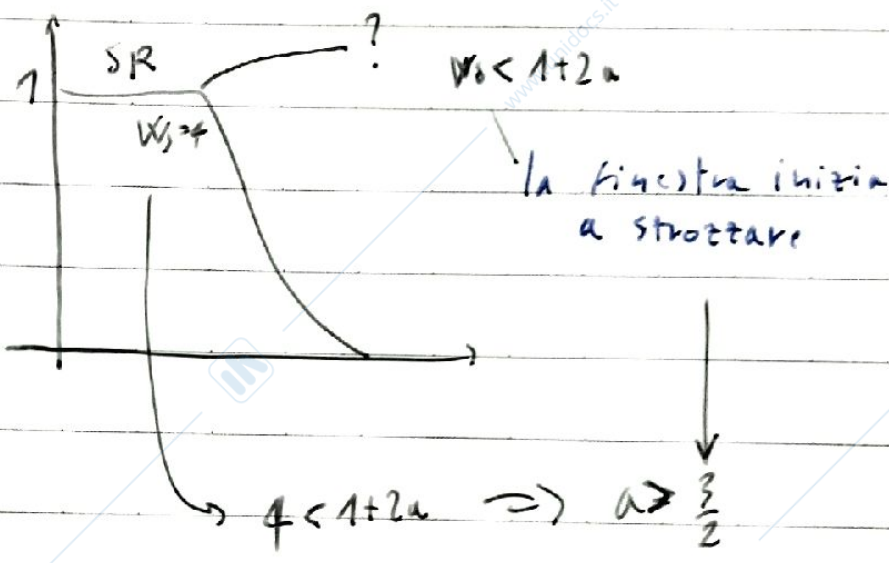 ?
SR
1
Ws=4
Ws < 1+2a
la finestra inizia
a strozzare
4 < 1+2a => a > 3/2